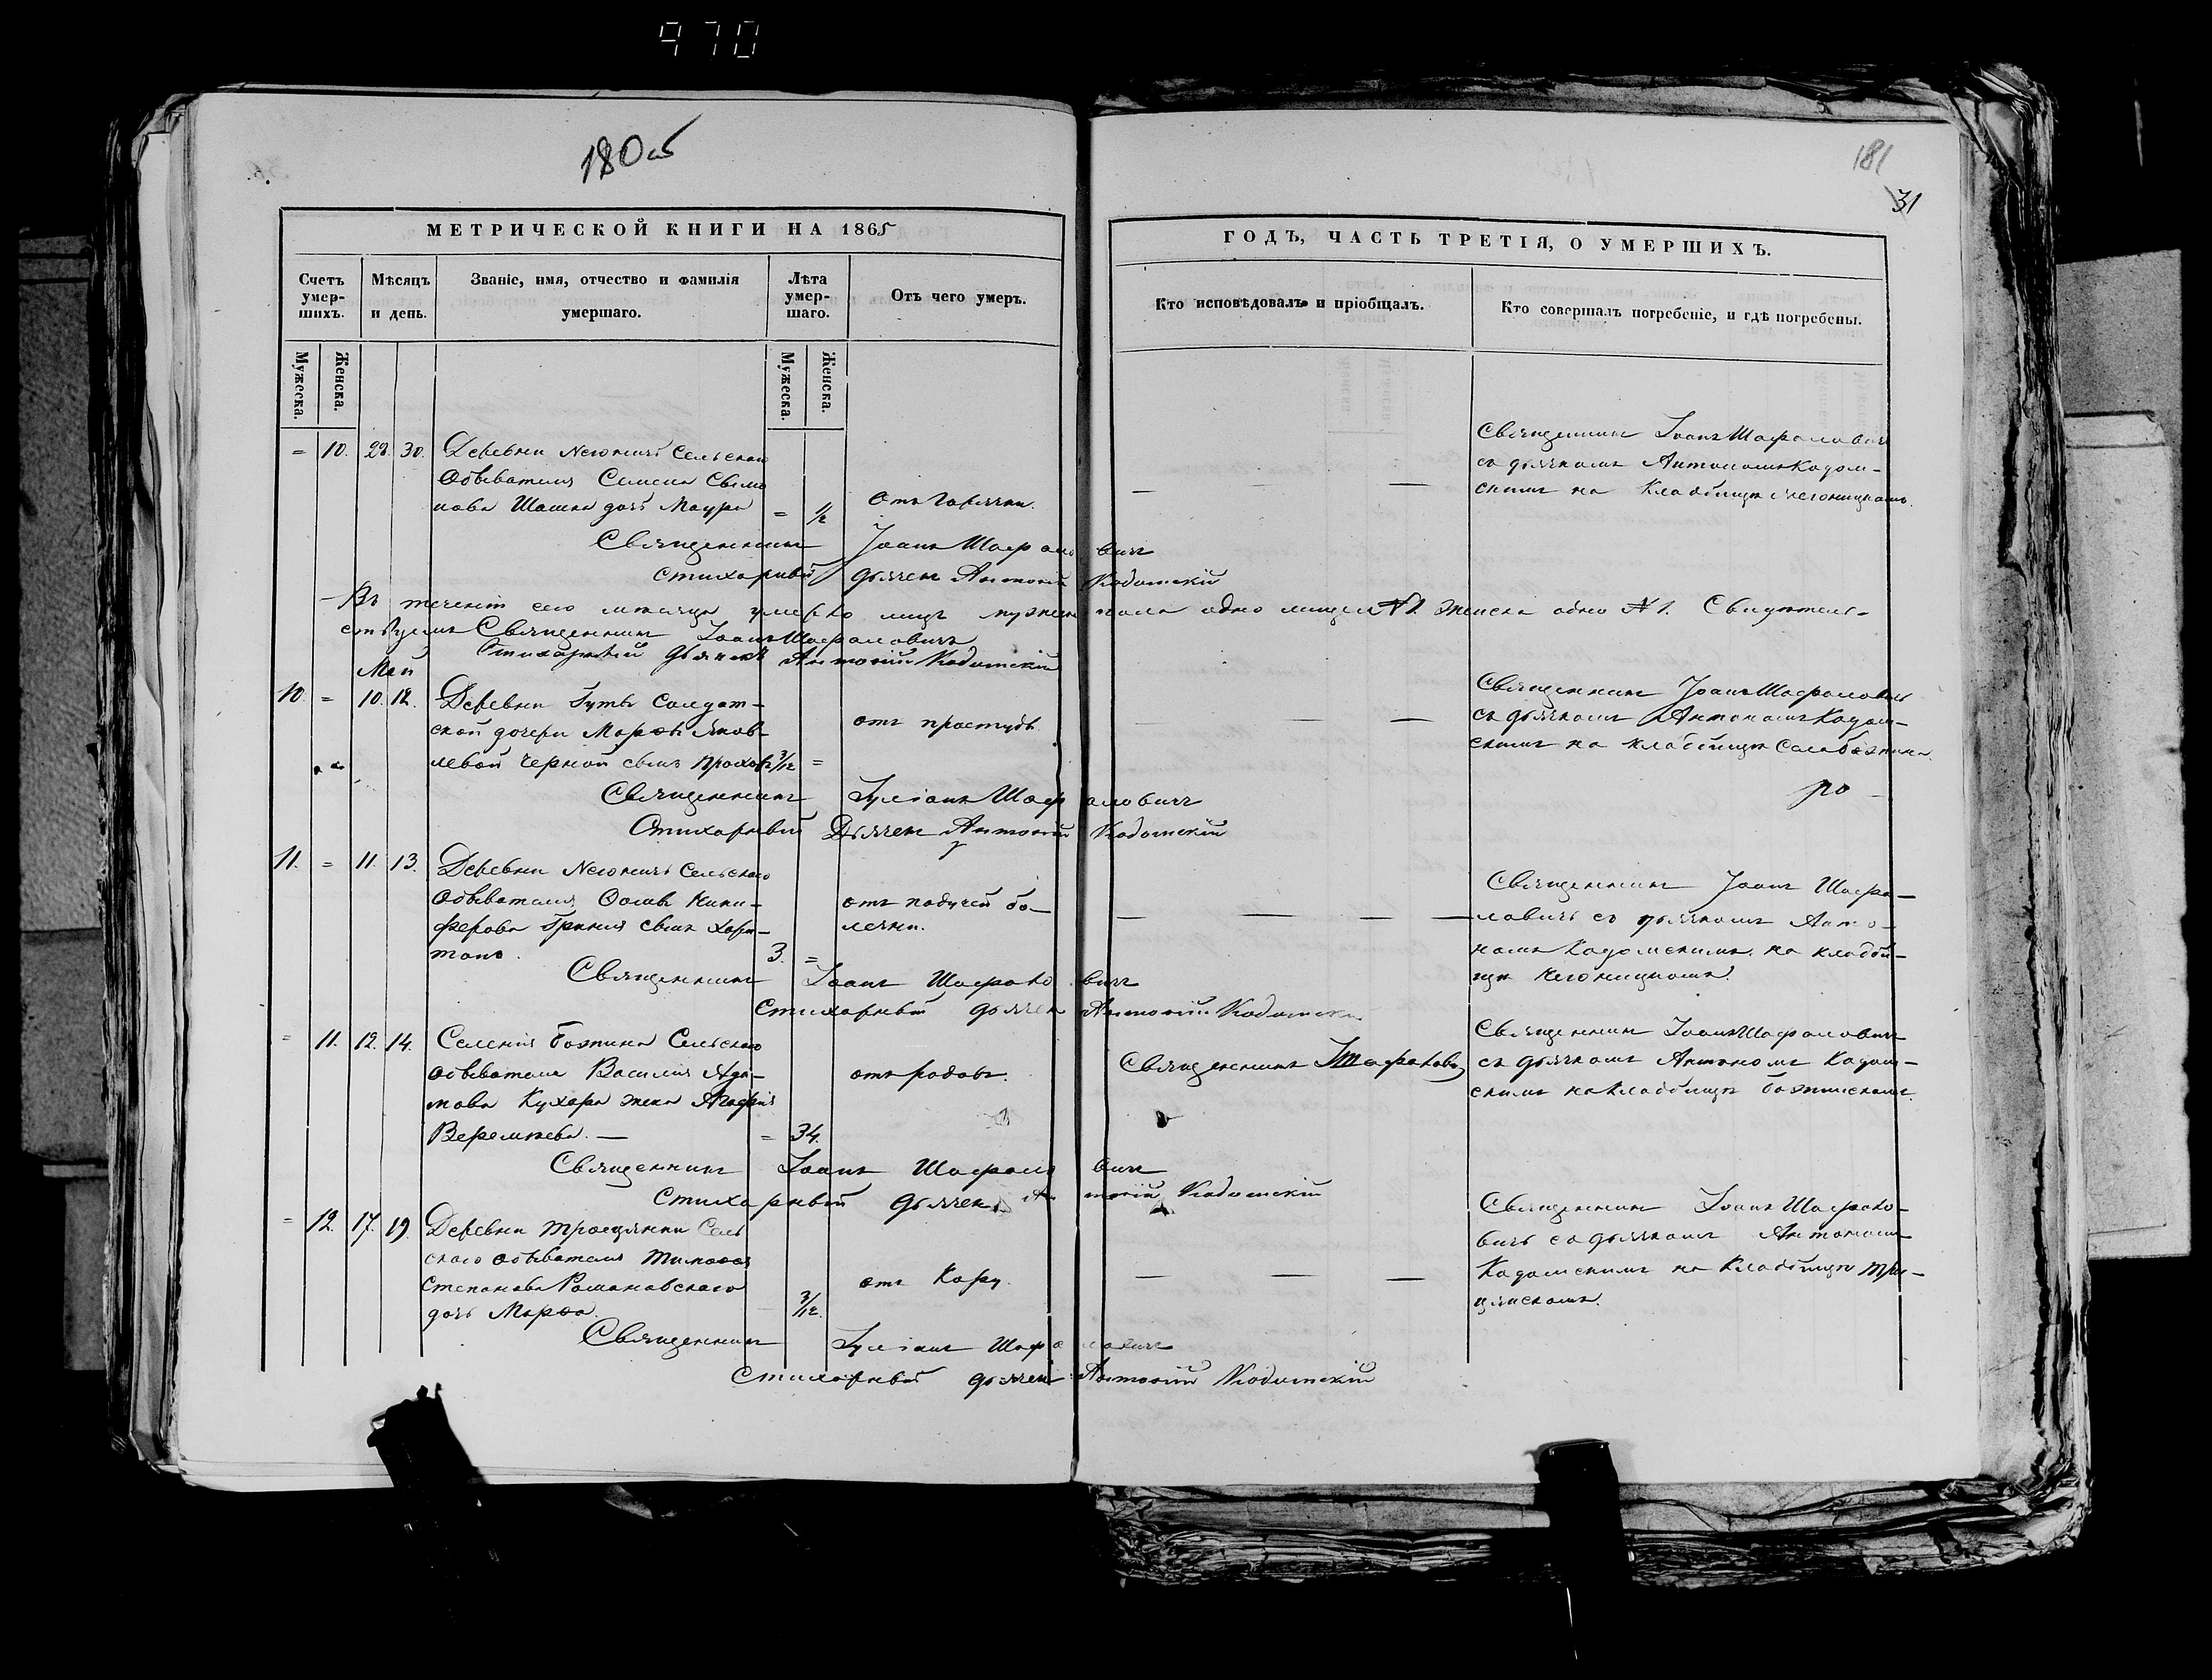 970
180 об
181
31
МЕТРИЧЕСКОЙ КНИГИ НА 1865
ГОДЪ, ЧАСТЬ ТРЕТІЯ, О УМЕРШИХЪ.
Счетъ умер-шихъ.
Мѣсяцъ и день.
Званіе, имя, отчество и фамилія умершаго.
Лѣта умер-шаго.
Отъ чего умеръ.
Кто исповѣдовалъ и пріобщалъ.
Кто совершалъ погребеніе, и гдѣ погребены.
Мужеска.
Женска.
Мужеска.
Женска.
= 10. 28. 30. Деревни Сельскаго
Обывателя Семена Симо
нова дочь Мавра = 1/2
отъ горячки.
Священникъ Іоаннъ Шафаловичъ
съ дьячкомъ Антономъ Кадом-
скимъ на кладбищѣ
Священникъ Іоаннъ Шафаловичъ
стихарный дьячекъ Антоній Кадомскій
Въ теченіи сего мѣсяца умерло лицъ мужеска пола одно лицо №1. Женска одно №1. Свидѣтель-
ствуемъ Священникъ Іоаннъ Шафаловичъ
Стихарный дьячекъ Антоній Кадомскій
Май
10 = 10. 12. Деревни Гуты Солдат-
ской дочери Марѳы Яков-
левой Черной сынъ Прохоръ 3/12 =
отъ простуды
Священникъ Іоаннъ Шафаловичъ
съ дьячкомъ Антономъ Кадом-
скимъ на кладбищѣ
Священникъ Іуліанъ Шафаловичъ
Стихарный Дьячекъ Антоній Кадомскій
11. = 11. 13. Деревни Сельскаго
Обывателя Ѳомы Ники-
форова сынъ Хари-
тонъ. 3. =
отъ падучей бо-
лезни.
Священникъ Іоаннъ Шафа-
ловичъ съ дьячкомъ Анто-
номъ Кадомскимъ на кладби-
щѣ
Священникъ Іоаннъ Шафаловичъ
Стихарный дьячекъ Антоній Кадомскій
= 11. 12. 14. Селенія Бажина Сельскаго
обывателя Василія Ада-
мова Кухара жена Агафія
Веремѣева. — = 34.
отъ родовъ.
Священникъ Шафаловичъ
Священникъ Іоаннъ Шафаловичъ
съ дьячкомъ Антономъ Кадом-
скимъ на кладбищѣ Бажинскомъ.
Священникъ Іоаннъ Шафаловичъ
Стихарный дьячекъ Антоній Кадомскій
= 12. 17. 19. Деревни Троецянки Сель
скаго обывателя Тимоѳея
Степанова Романовскаго
дочь Марѳа. 3/12.
отъ Кору.
Священникъ Іоаннъ Шафало-
вичъ съ дьячкомъ Антономъ
Кадомскимъ на кладбищѣ Трое-
цянскомъ.
Священникъ Іуліанъ Шафаловичъ
Стихарный дьячекъ Антоній Кадомскій